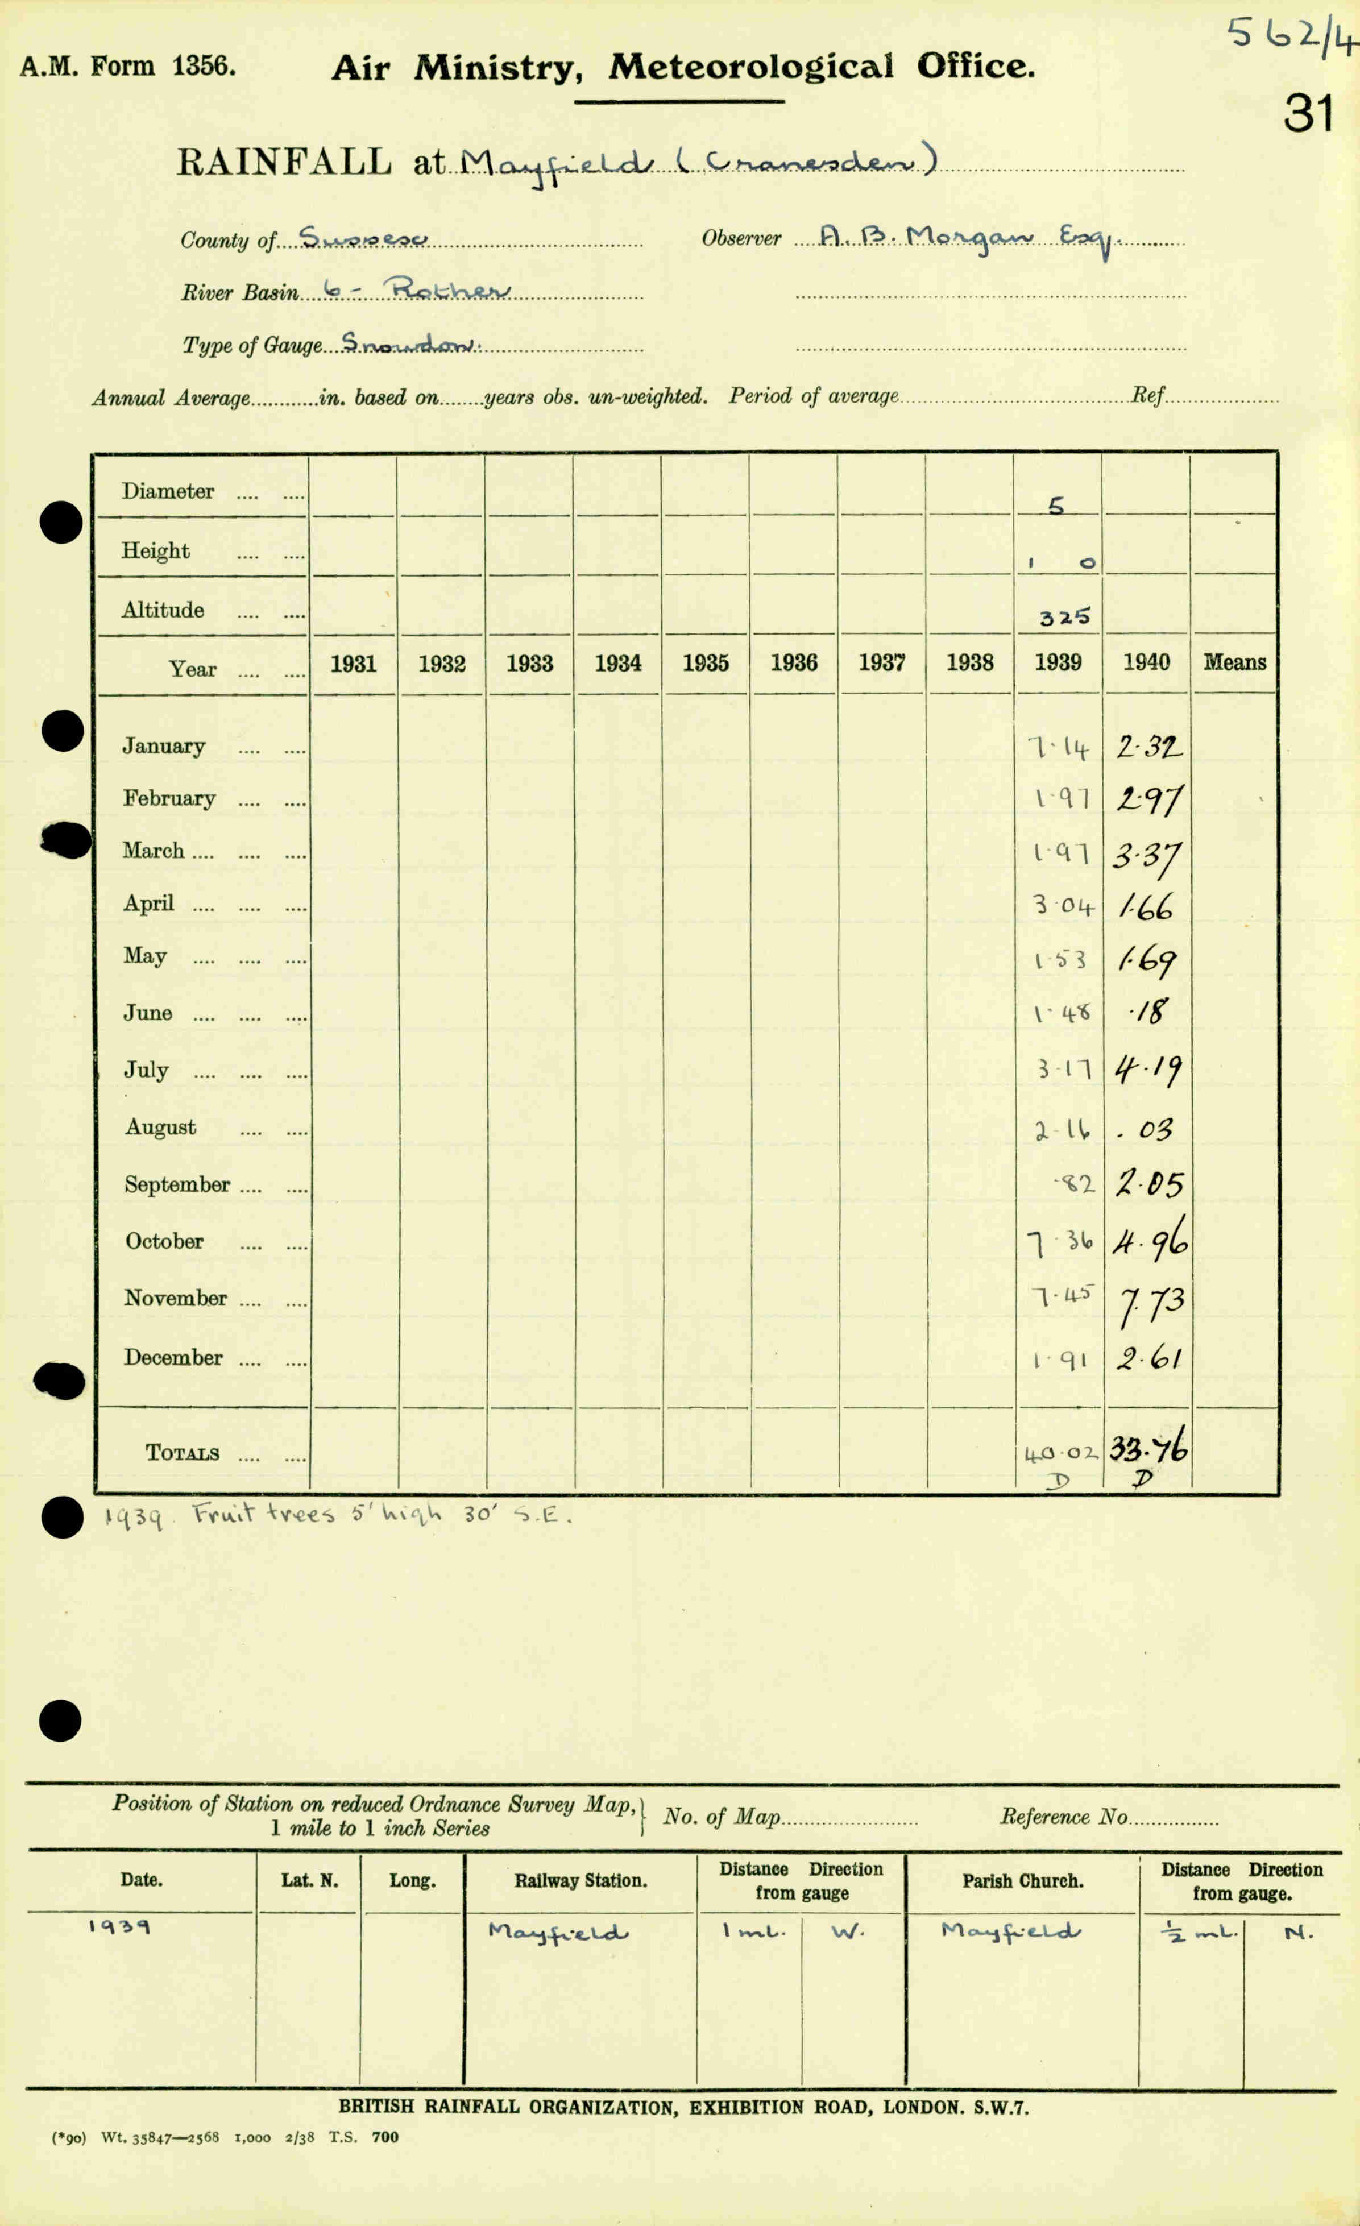 562/4
A.M. Form 1356. Air Ministry, Meteorological Office.
31
RAINFALL at Mayfield (Cranesden)
County of Sussex Observer A. B. Morgan Esq.
River Basin 6 - Rother
Type of Gauge Snowdon.
Annual Average............in. based on.......years obs. un-weighted. Period of average.......... Ref..........
Diameter .... .... 5
Height .... .... 1 0
Altitude .... .... 325
Year .... .... 1931 1932 1933 1934 1935 1936 1937 1938 1939 1940 Means
January .... .... 7·14 2·32
February .... .... 1·97 2·97
March .... .... .... 1·97 3·37
April .... .... .... 3·04 1·66
May .... .... .... 1·53 1·69
June .... .... .... 1·48 ·18
July .... .... .... 3·17 4·19
August .... .... 2·16 .03
September .... .... ·82 2·05
October .... .... 7·36 4·96
November .... .... 7·45 7.73
December .... .... 1·91 2·61
TOTALS .... .... 40·02 33·76
D D
1939. Fruit trees 5' high 30' S.E.
Position of Station on reduced Ordnance Survey Map, 1 mile to 1 inch Series } No. of Map.......... Reference No..........
Date. Lat. N. Long. Railway Station. Distance Direction from gauge Parish Church. Distance Direction from gauge.
1939 Mayfield 1 ml. W. Mayfield ½ ml. N.
BRITISH RAINFALL ORGANIZATION, EXHIBITION ROAD, LONDON. S.W.7.
(*90) Wt. 35847—2568 1,000 2/38 T.S. 700